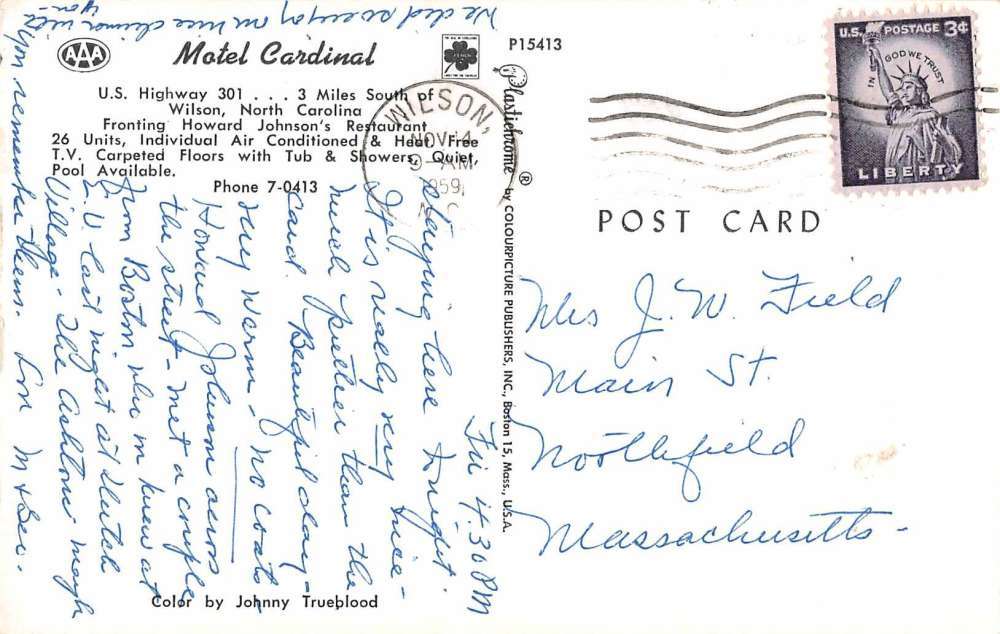 We did so enjoy our nice dinner with
you -
AAA
Motel Cardinal
U.S. Highway 301 . . . 3 Miles South of
Wilson, North Carolina
Fronting Howard Johnson's Restaurant
26 Units, Individual Air Conditioned & Heat, Free
T.V. Carpeted Floors with Tub & Showers, Quiet,
Pool Available.
Phone 7-0413
Fri 4:30 PM
Staying here tonight
It is really very nice -
much prettier than the
card. Beautiful day -
very warm - no coats -
Howard Johnson across
the street - met a couple
from Boston who m knew at
E.U. last night at Dutch
Village - The Ashtons maybe
you remember them. Love M & Geo.
Color by Johnny Trueblood
P15413
Plastichrome ® by COLOURPICTURE PUBLISHERS, INC., Boston 15, Mass., U.S.A.
WILSON,
NOV 14
9 - AM
1959
N.C.
U.S. POSTAGE 3¢
IN GOD WE TRUST
LIBERTY
POST CARD
Mrs J. W. Field
Main St.
Northfield
Massachusetts -